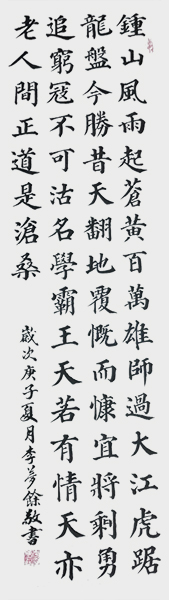 鍾山風雨起蒼黃百萬雄師過大江虎踞
龍盤今勝昔天翻地覆慨而慷宜將剩勇
追窮寇不可沽名學霸王天若有情天亦
老人間正道是滄桑
歲次庚子夏月李夢餘敬書